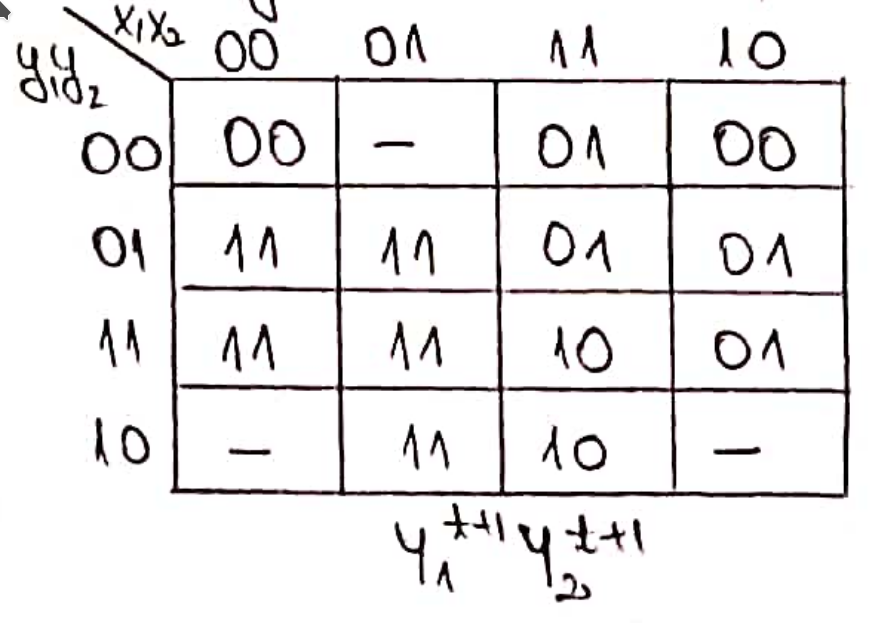 x₁x₂ 00 01 11 10
y₁y₂
00 00 – 01 00
01 11 11 01 01
11 11 11 10 01
10 – 11 10 –
y₁ᵗ⁺¹ y₂ᵗ⁺¹